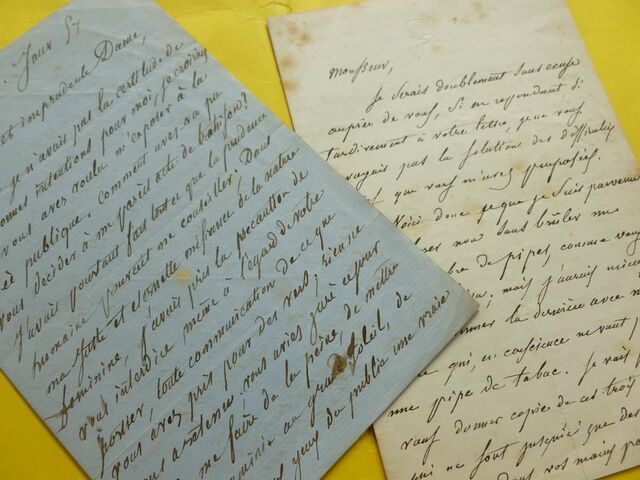 Janv 57
et imprudente Dame,
je n'avais pas la certitude de
bonnes intentions pour moi, je croirais
vous avez voulu m'exposer à la
publique. Comment avez-vous pu
vous décider à me pareil acte de trahison?
J'avais pourtant fait tout ce que la prudence
humaine pouvait me conseiller. Dans
ma juste et défiance de la nature
féminine, j'avais pris la précaution de
vous interdire même à l'égard de votre
toute communication de ce que
vous aviez pris pour des vers; rien ne
existence; vous aviez juré ce jour
me faire de la peine, de mettre
au grand Soleil, de
yeux du public une vraie
Monsieur,
Je serais doublement sans excuse
auprès de vous, si en répondant si
tardivement à votre lettre, je ne vous
envoyais pas la solution des difficultés
que vous m'avez proposées.
Voici donc ce que je suis parvenu
non sans brûler me
de pipes, comme vous
mais j'aurais mieux
la dernière avec
ce qui, en conscience ne vaut,
une pipe de tabac. Je vais
vous donner copie de ces trois
qui ne sont jusqu'ici que des
vos mains pour